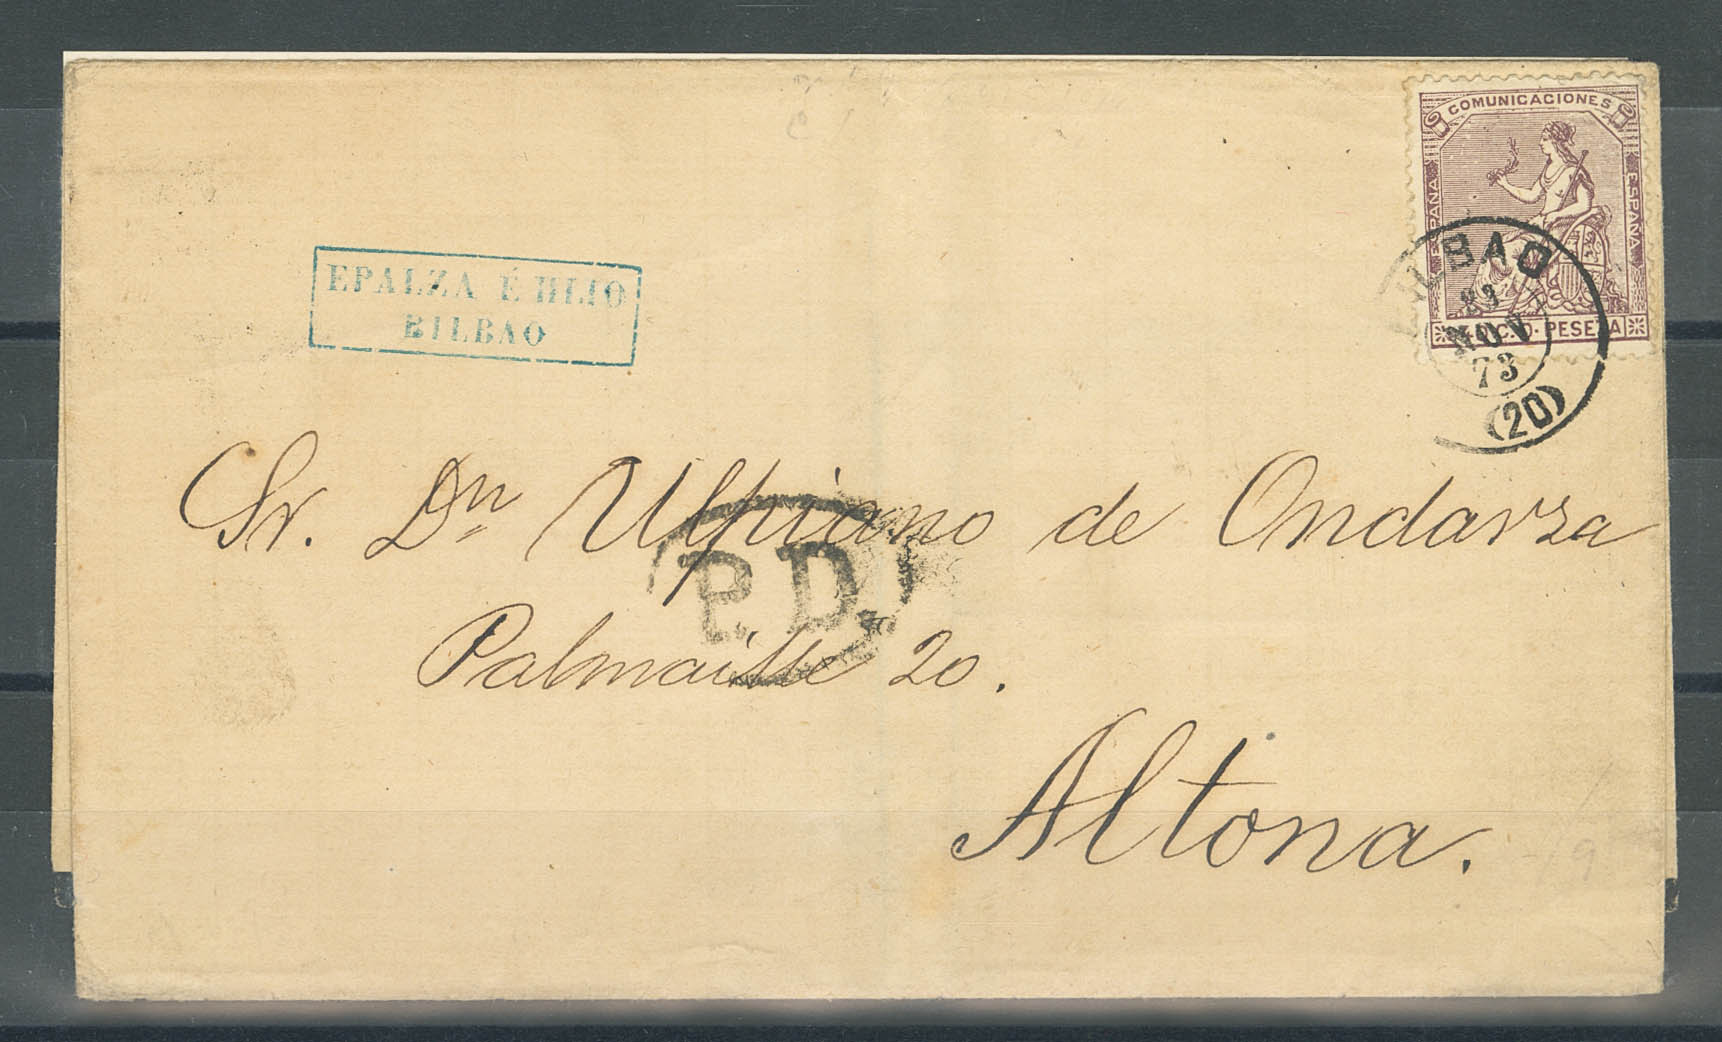 COMUNICACIONES
ESPAÑA
ESPAÑA
40 C. D. PESETA
BILBAO
NOV
73
(20)
EPALZA É HIJO
BILBAO
Sr. Dn Ulpiano de Ondarza
P.D.
Palmaille 20.
Altona.
19